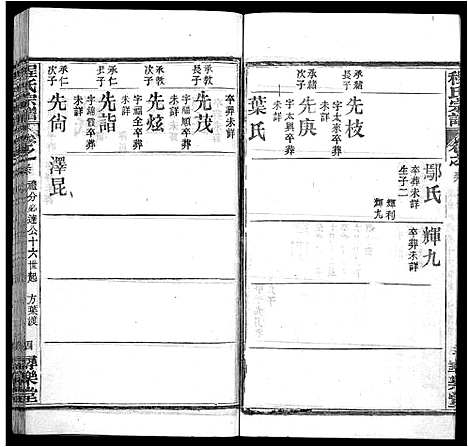 程氏宗譜
承緒
長子
先枝
字太來卒葬
未詳
承緒
次子
先庚
字太興卒葬
未詳
葉氏
卒葬未詳
鄢氏
卒葬未詳
生子二
輝利
輝九
輝九
卒葬未詳
承教
長子
先茂
字福順卒葬
未詳
承教
次子
先炫
字福全卒葬
未詳
承仁
長子
先詣
字錦元卒葬
未詳
承仁
次子
先尙
澤昆
程氏宗譜
禮分必達公十六世起
方葉漢
四
樂堂